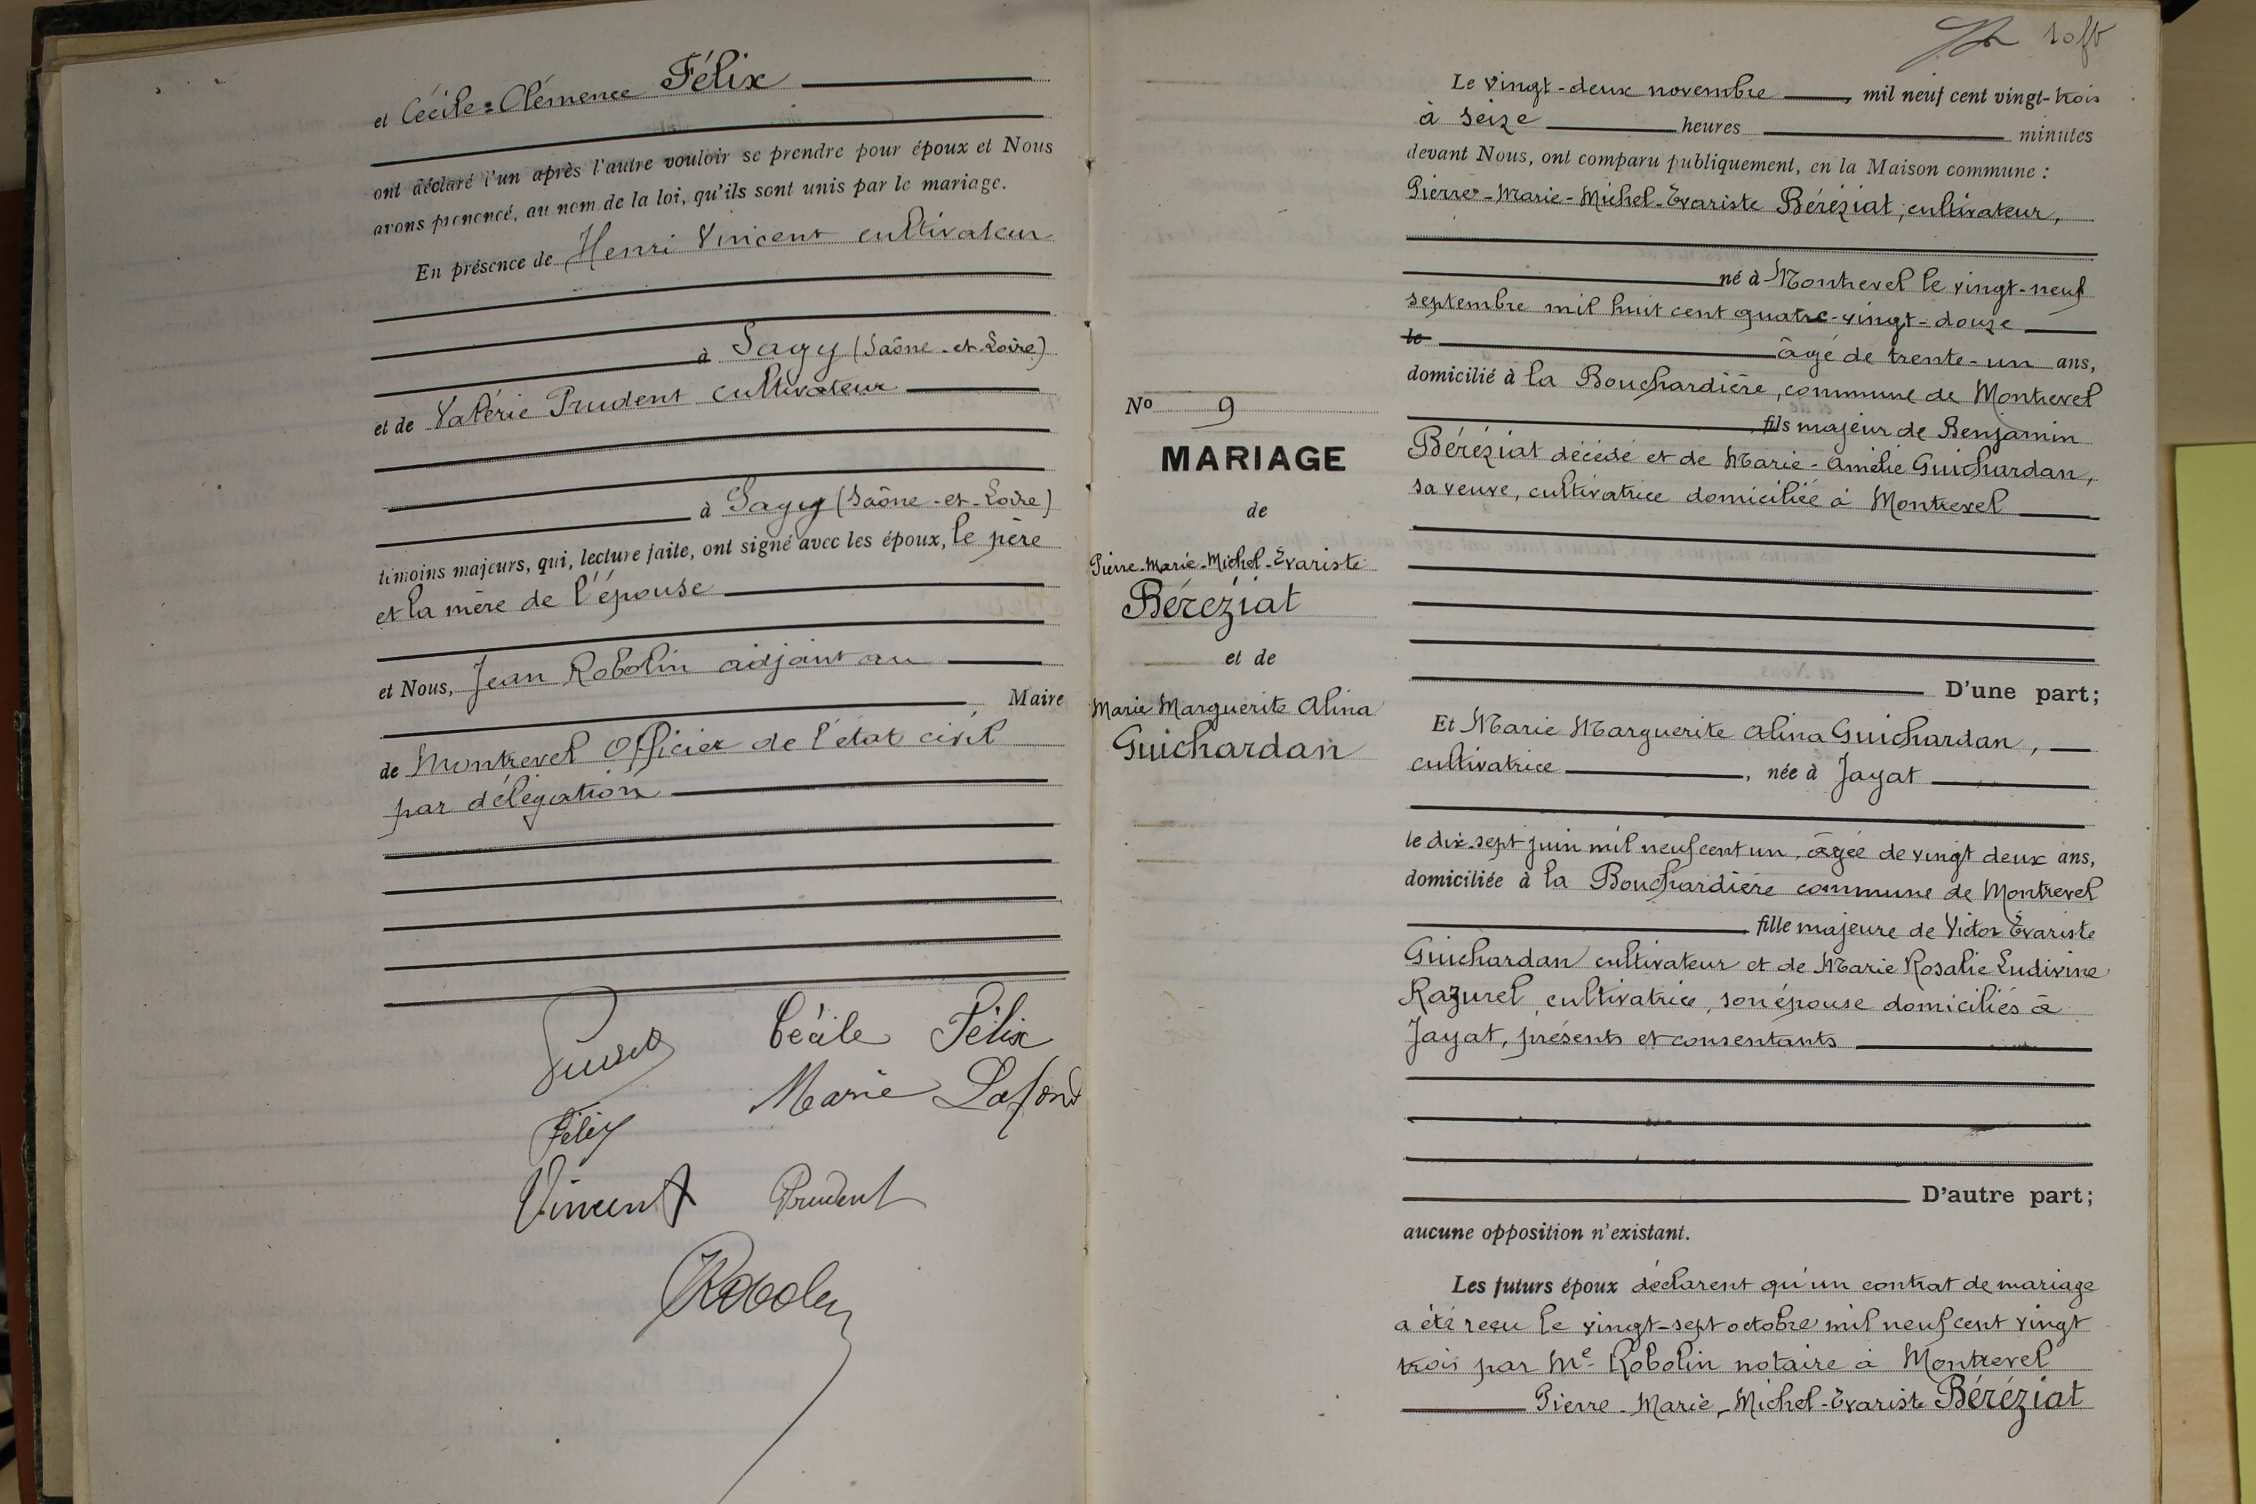 et Cécile-Clémence Félix
ont déclaré l'un après l'autre vouloir se prendre pour époux et Nous
avons prononcé, au nom de la loi, qu'ils sont unis par le mariage.
En présence de Henri Vincent cultivateur
à Sagy (Saône-et-Loire)
et de Valérie Prudent cultivateur
à Sagy (Saône-et-Loire)
témoins majeurs, qui, lecture faite, ont signé avec les époux, le père
et la mère de l'épouse
et Nous, Jean Robolin adjoint au
Maire
de Montrevel Officier de l'état civil
par délégation
Cécile Félix
Marie Lafond
Félix
Vincent Prudent
Robolin
Le vingt-deux novembre, mil neuf cent vingt-trois
à seize heures minutes
devant Nous, ont comparu publiquement, en la Maison commune :
Pierre-Marie-Michel-Evariste Béréziat, cultivateur,
né à Montrevel le vingt-neuf
septembre mil huit cent quatre-vingt-douze
le âgé de trente-un ans,
domicilié à la Bouchardière, commune de Montrevel
fils majeur de Benjamin
Béréziat décédé et de Marie-Amélie Guichardan,
sa veuve, cultivatrice domiciliée à Montrevel
D'une part;
No 9
MARIAGE
de
Pierre-Marie-Michel-Evariste
Béréziat
et de
Marie Marguerite Alina
Guichardan
Et Marie Marguerite Alina Guichardan,
cultivatrice, née à Jayat
le dix-sept juin mil neuf cent un, âgée de vingt deux ans,
domiciliée à la Bouchardière commune de Montrevel
fille majeure de Victor Evariste
Guichardan cultivateur et de Marie Rosalie Ludivine
Razurel, cultivatrice, son épouse domiciliés à
Jayat, présents et consentants
D'autre part;
aucune opposition n'existant.
Les futurs époux déclarent qu'un contrat de mariage
a été reçu le vingt-sept octobre mil neuf cent vingt
trois par Me Robolin notaire à Montrevel
Pierre-Marie-Michel-Evariste Béréziat